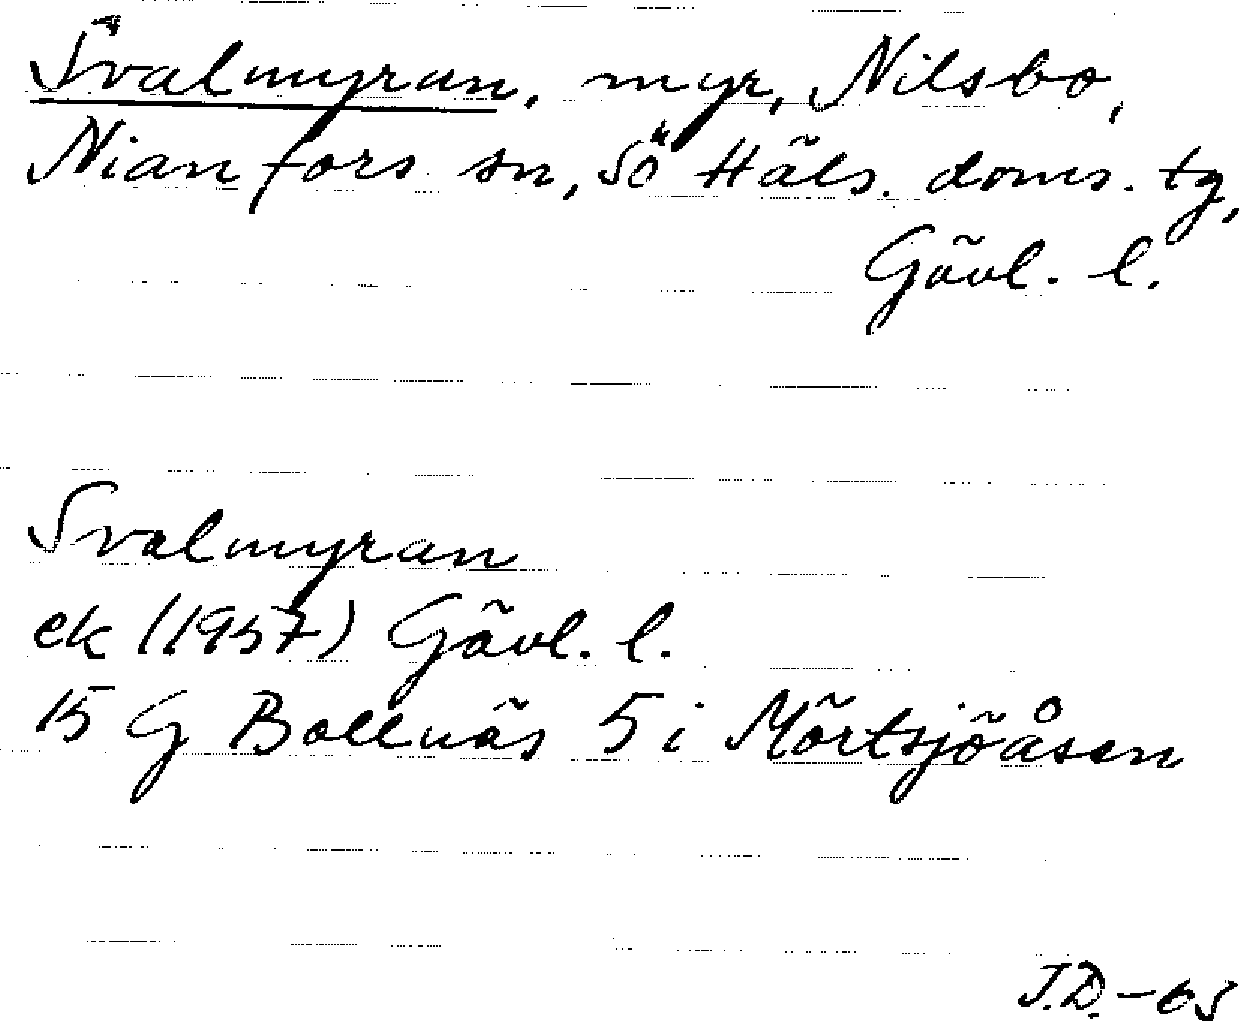 Svalmyran, myr, Nilsbo,
Nianfors sn, Sö Häls. doms. tg,
Gävl. l.
Svalmyran
ek (1957) Gävl. l.
15 G Bollnäs 5 i Mörtsjöåsen
J.D. -65